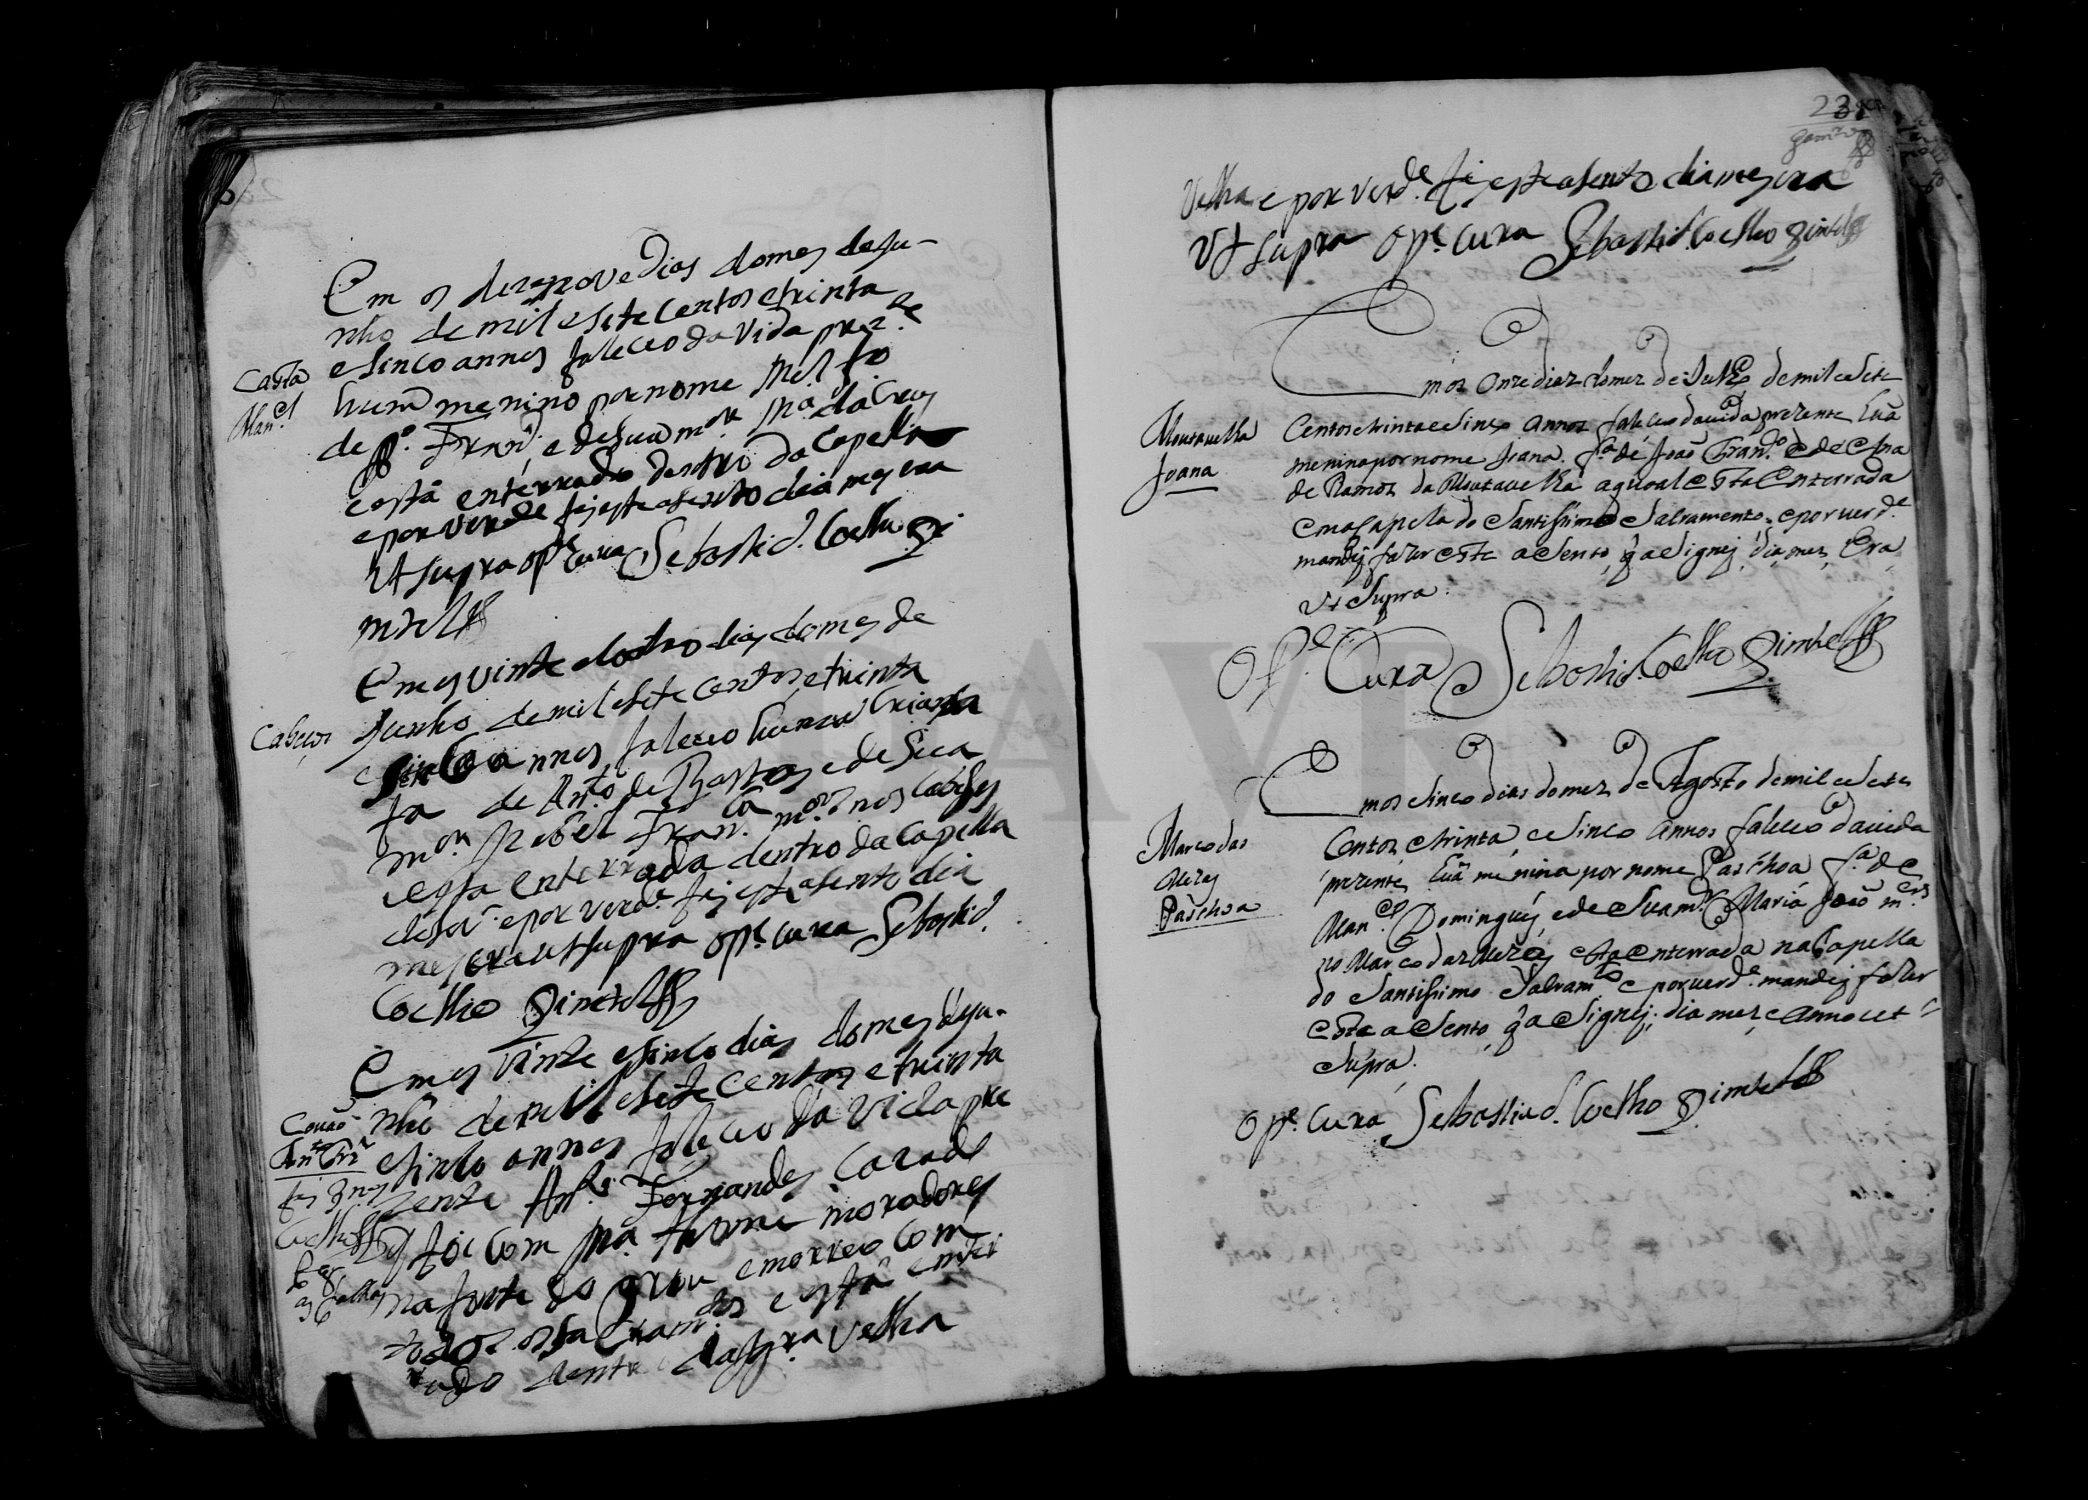 Em os dezanove dias do mes de Ju-
nho de mil e sete centos e trinta
e sinco annos faleceo da vida prez.te
Casta
Man.el
hum menino por nome M.el fo
de P.o Fran.co e de sua m.er M.a da Crus
e está enterrado dentro da Capella
e por verde fis este asento dia mes era
Ut supra o p.e Cura Sebastiã. Coelho Pi
mtel
Em os vinte e coatro dias do mes de
Cabeços
Junho de mil e sete centos e trinta
e sinco annos faleceo huma Criansa
fa de Ant.o de Bastos e de sua
m.er Izabel Fran.ca m.ores nos Cabesos
e esta enterrada dentro da Capella
do Sr. e por verd.e fis este asento dia
mes era ut supra o p.e Cura Sebastiã.
Coelho Pimetel
Em os vinte e sinco dias do mes de Ju-
Couão
Ant.o Frz
nho de mil e sete centos e trinta
e sinco annos faleceo da vida pre
zente Ant.o Fernandes Cazado
q foi com M.a Thome moradores
na fonte do grou e morreo com
todos os sacram.tos e está enter
rado dentro da Igr.a velha
23
Velha e por verd.e fis este asento dia mes era
Ut supra o p.e Cura Sebastiã. Coelho Pimtel
Em os onze dias do mez de Julho de mil e sete
Moutavelha
Joana
Centos e trinta e sinco annos faleceo da vida prezente hũa
menina por nome Joana. f.a de João Fran.co e de Ana
de Ramos da Moutavelha a qual está enterrada
em a Capela do Santissimo Sacramento. e por verd.e
mandej fazer este asento, q asignej, dia, mes, Era,
Ut Supra.
O P.e Cura Sebastiã. Coelho Pimtel
Em os sinco dias do mez de Agosto de mil e sete
Marco das
Merej
Paschoa
Centos, e trinta, e sinco annos faleceo da vida
prezente, hũa menina por nome Paschoa f.a de
Man.el Dominguej e de sua m.er Maria João m.res
no Marco das Merej está enterrada na Capella
do Santissimo Sacram.to e por verd.e mandej fazer
este asento, q asignej, dia mes, e Anno ut
Supra.
O p.e Cura Sebastiã. Coelho Pimtel